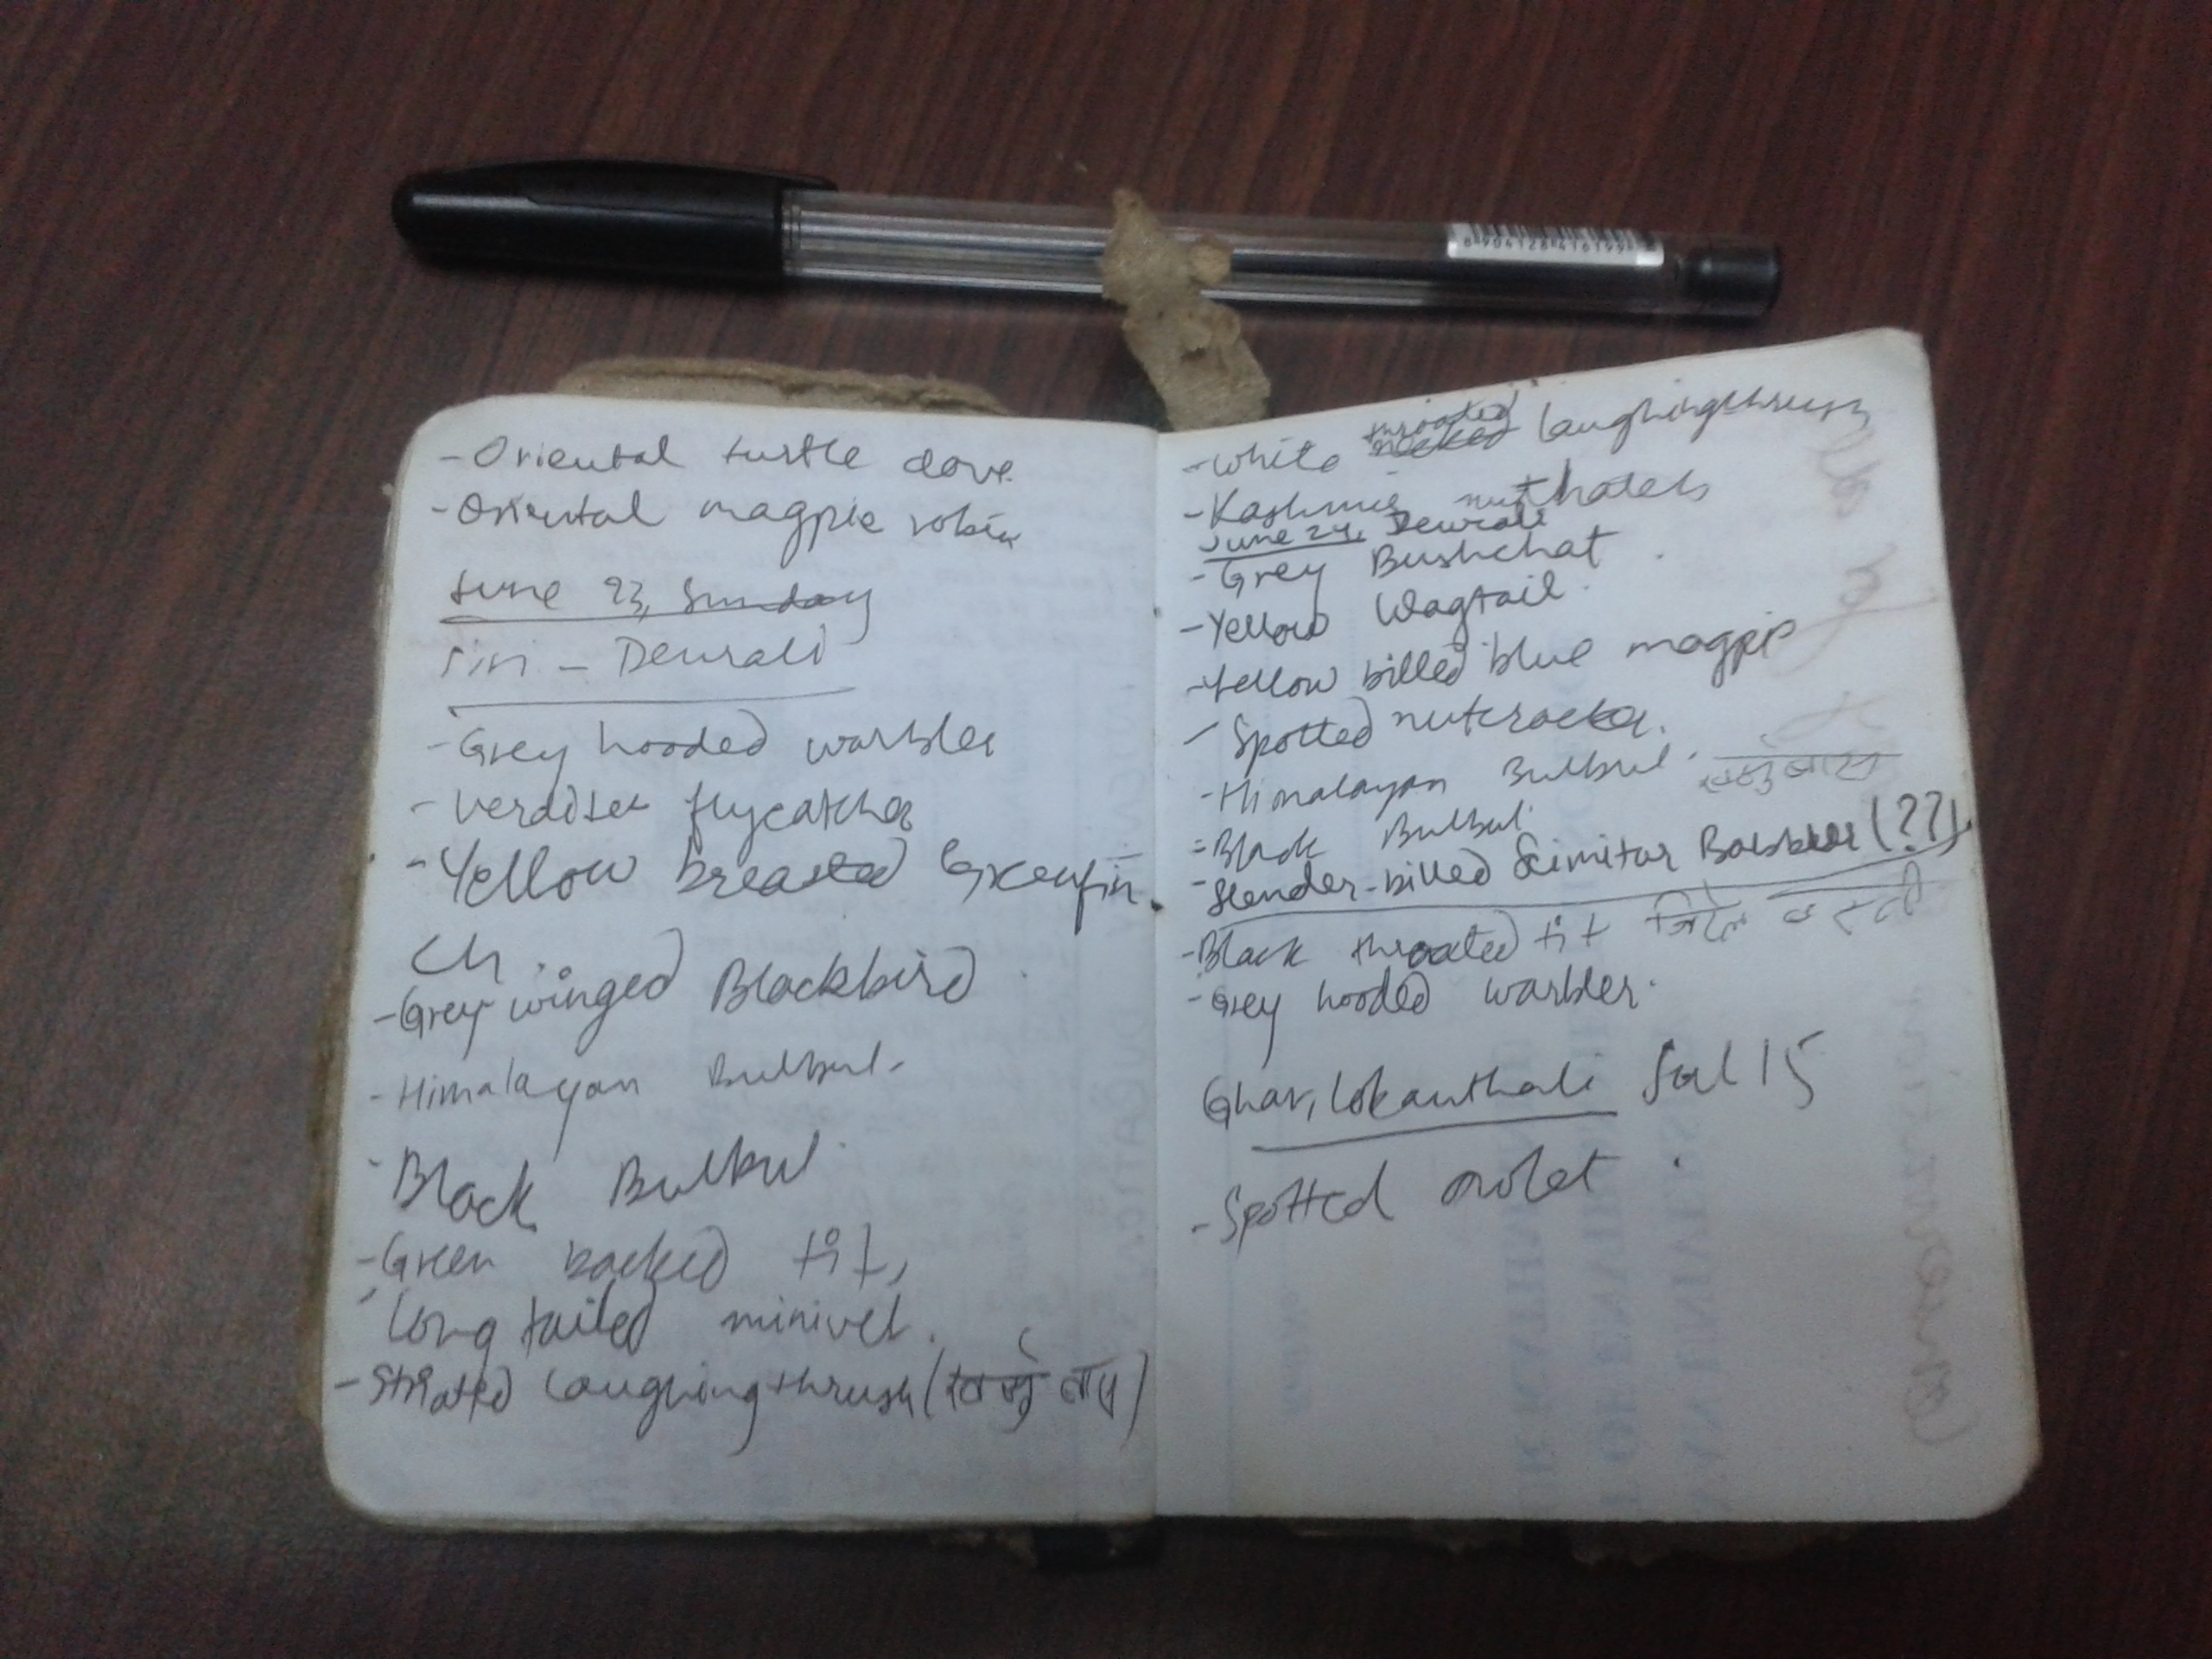 - Oriental turtle dove.
- Oriental magpie robin
June 23, Sunday
Siri - Deurali
- Grey hooded warbler
- Verditer flycatcher
- Yellow breasted Greenfin
ch.
- Grey winged Blackbird
- Himalayan Bulbul.
- Black Bulbul.
- Green backed tit,
- Long tailed minivet.
- Striated laughingthrush (
- White throated laughingthrush
- Kashmir nuthatch
June 24, Deurali
- Grey Bushchat
- Yellow Wagtail.
- Yellow billed blue magpie
- Spotted nutcracker.
- Himalayan Bulbul.
- Black Bulbul.
- Slender-billed Scimitar Babbler (??)
- Black throated tit
- Grey hooded warbler.
Ghar, Lokanthali 15
- Spotted owlet
8904128416199